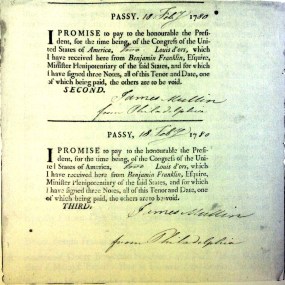 PASSY, 18 Feby 1780
I PROMISE to pay to the honourable the Presi-
dent, for the time being, of the Congreſs of the Uni-
ted States of America, two Louis d'ors, which
I have received here from Benjamin Franklin, Eſquire,
Miniſter Plenipotentiary of the ſaid States, and for which
I have ſigned three Notes, all of this Tenor and Date, one
of which being paid, the others are to be void.
SECOND.
James Mullin
from Philadelphia
PASSY, 18 Feby 1780
I PROMISE to pay to the honourable the Preſi-
dent, for the time being, of the Congreſs of the Uni-
ted States of America, two Louis d'ors, which
I have received here from Benjamin Franklin, Eſquire,
Miniſter Plenipotentiary of the ſaid States, and for which
I have ſigned three Notes, all of this Tenor and Date, one
of which being paid, the others are to be void.
THIRD.
James Mullin
from Philadelphia